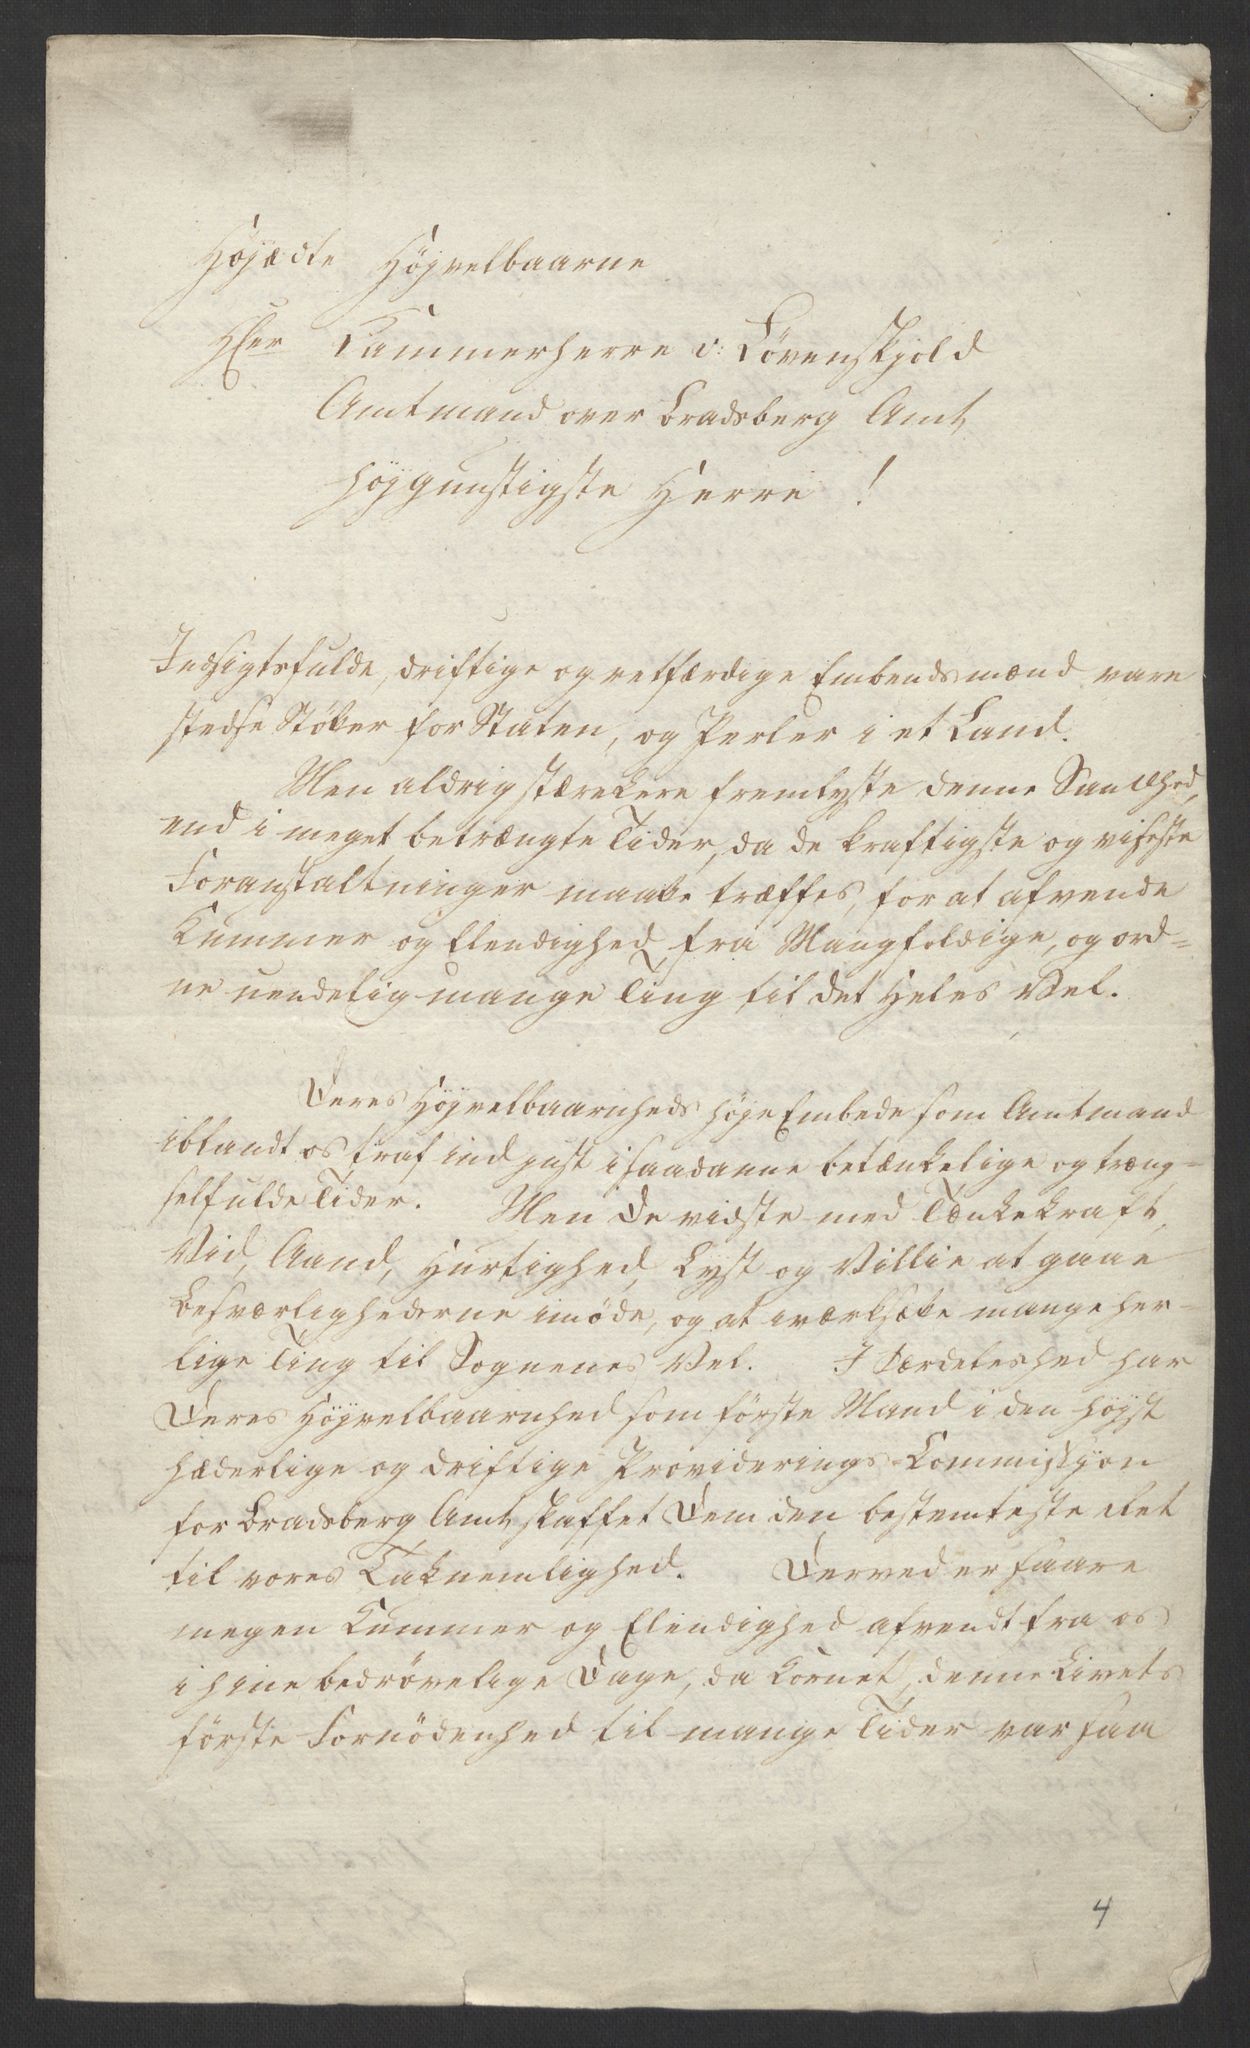 Højædle Højvelbaarne
Hr Kammerherre v: Løvenskjold
Amtmand over Bradsberg Amt,
højgunstigste Herre!
Indsigtsfulde, driftige og retfærdige Embedsmænd vare
stedse Støtter for Staten, og Perler i et Land.
Men aldrig stærkere fremlyste denne Sandhed,
end i meget betrængte Tider, da de kraftigste og viseste
Foranstaltninger maatte træffes, for at afvende
Kummer og Elendighed fra Mangfoldige, og ord=
ne uendelig mange Ting til det Heles Vel.
Deres Højvelbaarnheds høje Embede som Amtmand
iblandt os, traf ind just i saadanne betænkelige og træng-
selfulde Tider. Men De vidste med Tænkekraft,
Vid, Aand, Hurtighed, Lyst og Villie at gaae
Besværlighederne imøde, og at iværksætte mange her-
lige Ting til Sognenes Vel. I Særdeleshed har
Deres Højvelbaarnhed som første Mand i den højst
hæderlige og driftige Providerings-Commissjon
for Bradsberg Amt, skaffet Dem den bestemteste Ret
til vores Taknemlighed. Derved er saare
megen Kummer og Elendighed afvendt fra os
i hine bedrøvelige Dage, da Kornet, denne Livets
første Fornødenhed til mange Tider var saa
4